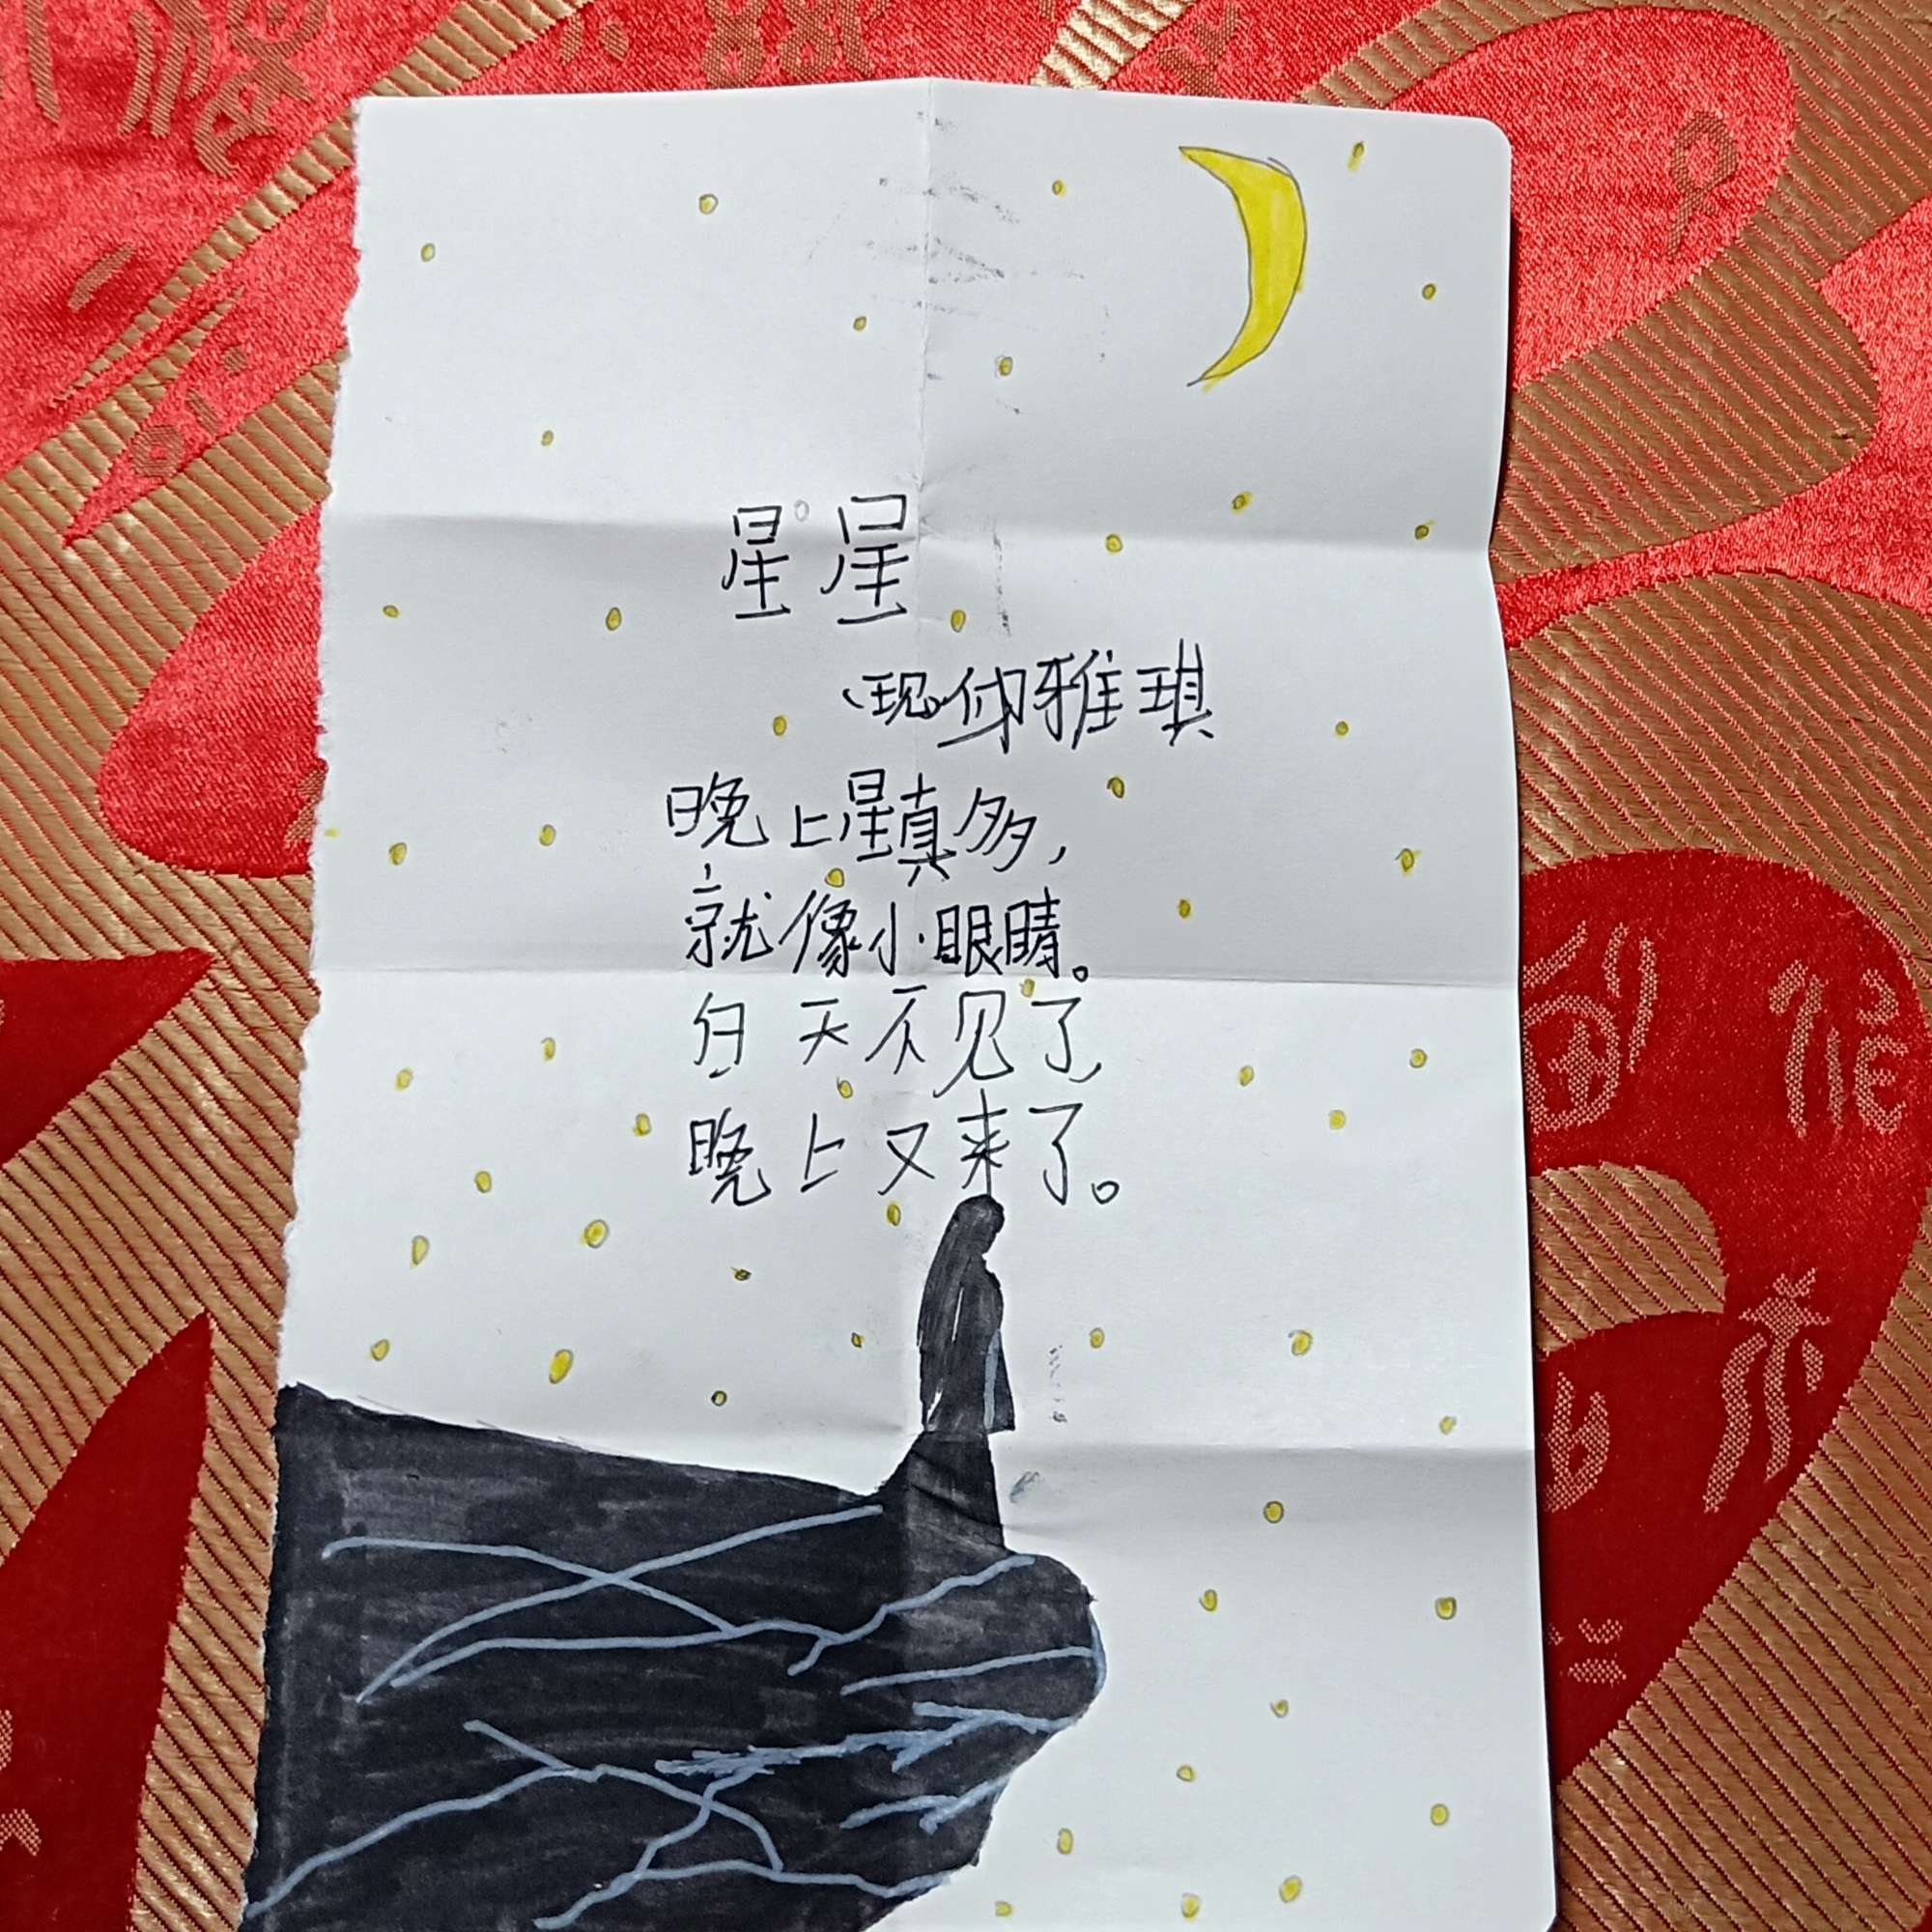 星星
现 雅琪
晚上星真多，
就像小眼睛。
白天不见了，
晚上又来了。